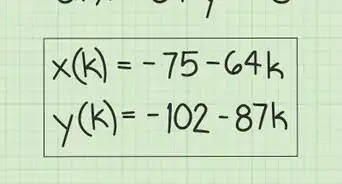 x(k) = -75-64k
y(k)= -102-87k